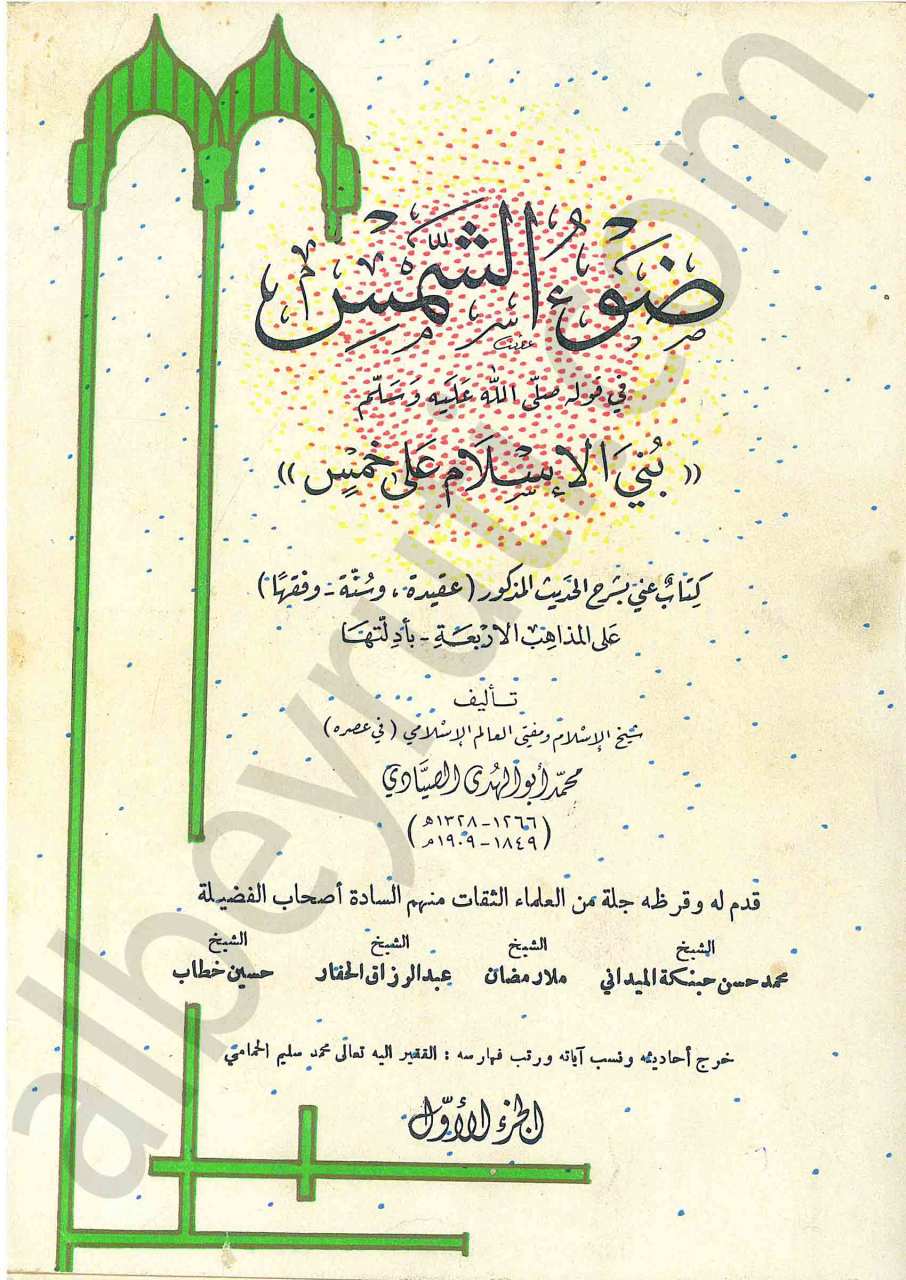 ضَوْءُ الشَّمْسِ
في قوله صلّى اللّه عَلَيه وَسَلّم
« بُنيَ الإسْلَام عَلى خمسٍ »
كِتابٌ عني بشرح الحَديث المذكور ( عقيدة ، وسُنّة - وفقهًا )
عَلى المذاهِب الاربعَة - بأدلّتهَا
تأليف
شيخ الإسْلام ومفتي العالم الإسْلامي ( في عصره )
محمّد أبو الهُدى الصيّادي
( ١٢٦٦ - ١٣٢٨ هـ
١٨٤٩ - ١٩٠٩ م )
قدم له وقرظه جلة من العلماء الثقات منهم السادة أصحاب الفضيلة
الشيخ الشيخ الشيخ الشيخ
محمد حسن حبنكة الميداني ملا رمضان عبد الرزاق الحفار حسين خطاب
خرج أحاديثه ونسب آياته ورتب فهارسه : الفقير اليه تعالى محمد سليم الحمامي
الجزء الأوّل
albeyruti.com